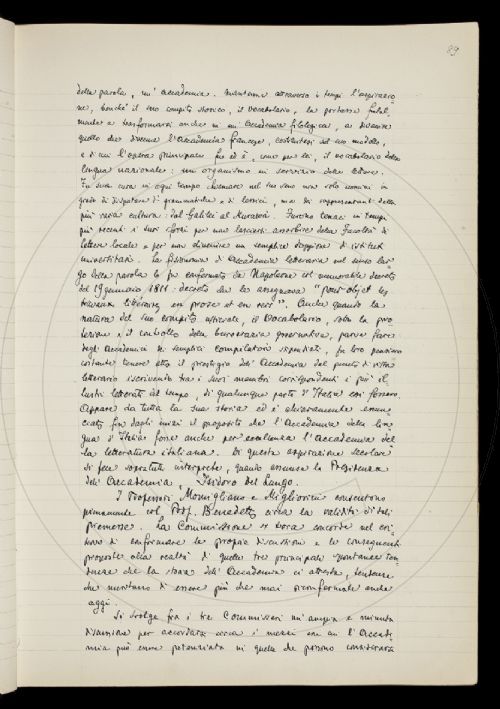 89
della parola, un' accademia. Mantenne attraverso i tempi l'aspirazio-
ne, benché il suo compito storico, il vocabolario, la portasse fatal-
mente a trasformarsi anche in un' accademia filologica, a divenire
quello che divenne l'Accademia francese, costituitasi sul suo modello,
e di cui l'opera principale fu ed è, come per lei, il vocabolario della
lingua nazionale: un organismo in servizio delle lettere.
Fu sua cura in ogni tempo chiamare nel suo seno non solo uomini in
grado di disputare di grammatiche e di lessici, ma dei rappresentanti della
più varia cultura: dal Galilei al Muratori. Furono tenaci in tempi
più recenti i suoi sforzi per non lasciarsi assorbire dalla Facoltà di
lettere locale e per non divenire un semplice doppione di istituti
universitari. La fisionomia di Accademia letteraria nel senso lar-
go della parola le fu confermata da Napoleone col memorabile decreto
del 19 gennaio 1811: decreto che le assegnava "pour objet les
travaux littéraires en prose et en vers". Anche quando la
natura del suo compito ufficiale, il Vocabolario, sotto la pro-
tezione e il controllo della burocrazia governativa, parve fare
degli Accademici dei semplici compilatori stipendiati, fu loro pensiero
costante tenere alto il prestigio dell' Accademia dal punto di vista
letterario iscrivendo tra i suoi membri corrispondenti i più il-
lustri letterati del tempo, di qualunque parte d'Italia essi fossero.
Appare da tutta la sua storia ed è chiaramente enun-
ciato fin dagli inizi il proposito che l'Accademia della lin-
gua d'Italia fosse anche per eccellenza l'Accademia del-
la letteratura italiana. Di questa aspirazione secolare
si fece soprattutto interprete, quando assunse la Presidenza
dell' Accademia, Isidoro Del Lungo.
I Professori Momigliano e Migliorini consentono
pienamente col Prof. Benedetto circa la validità di tali
premesse. La Commissione si trova concorde nel cri-
terio di conformare la propria discussione e le conseguenti
proposte alla realtà di quelle tre principali spontanee ten-
denze che la storia dell' Accademia ci attesta, tendenze
che meritano di essere più che mai riconfermate anche
oggi.
Si svolge fra i tre Commissari un' ampia e minuta
discussione per accordarsi circa i mezzi con cui l'Accade-
mia può essere potenziata in quelle che possono considerarsi